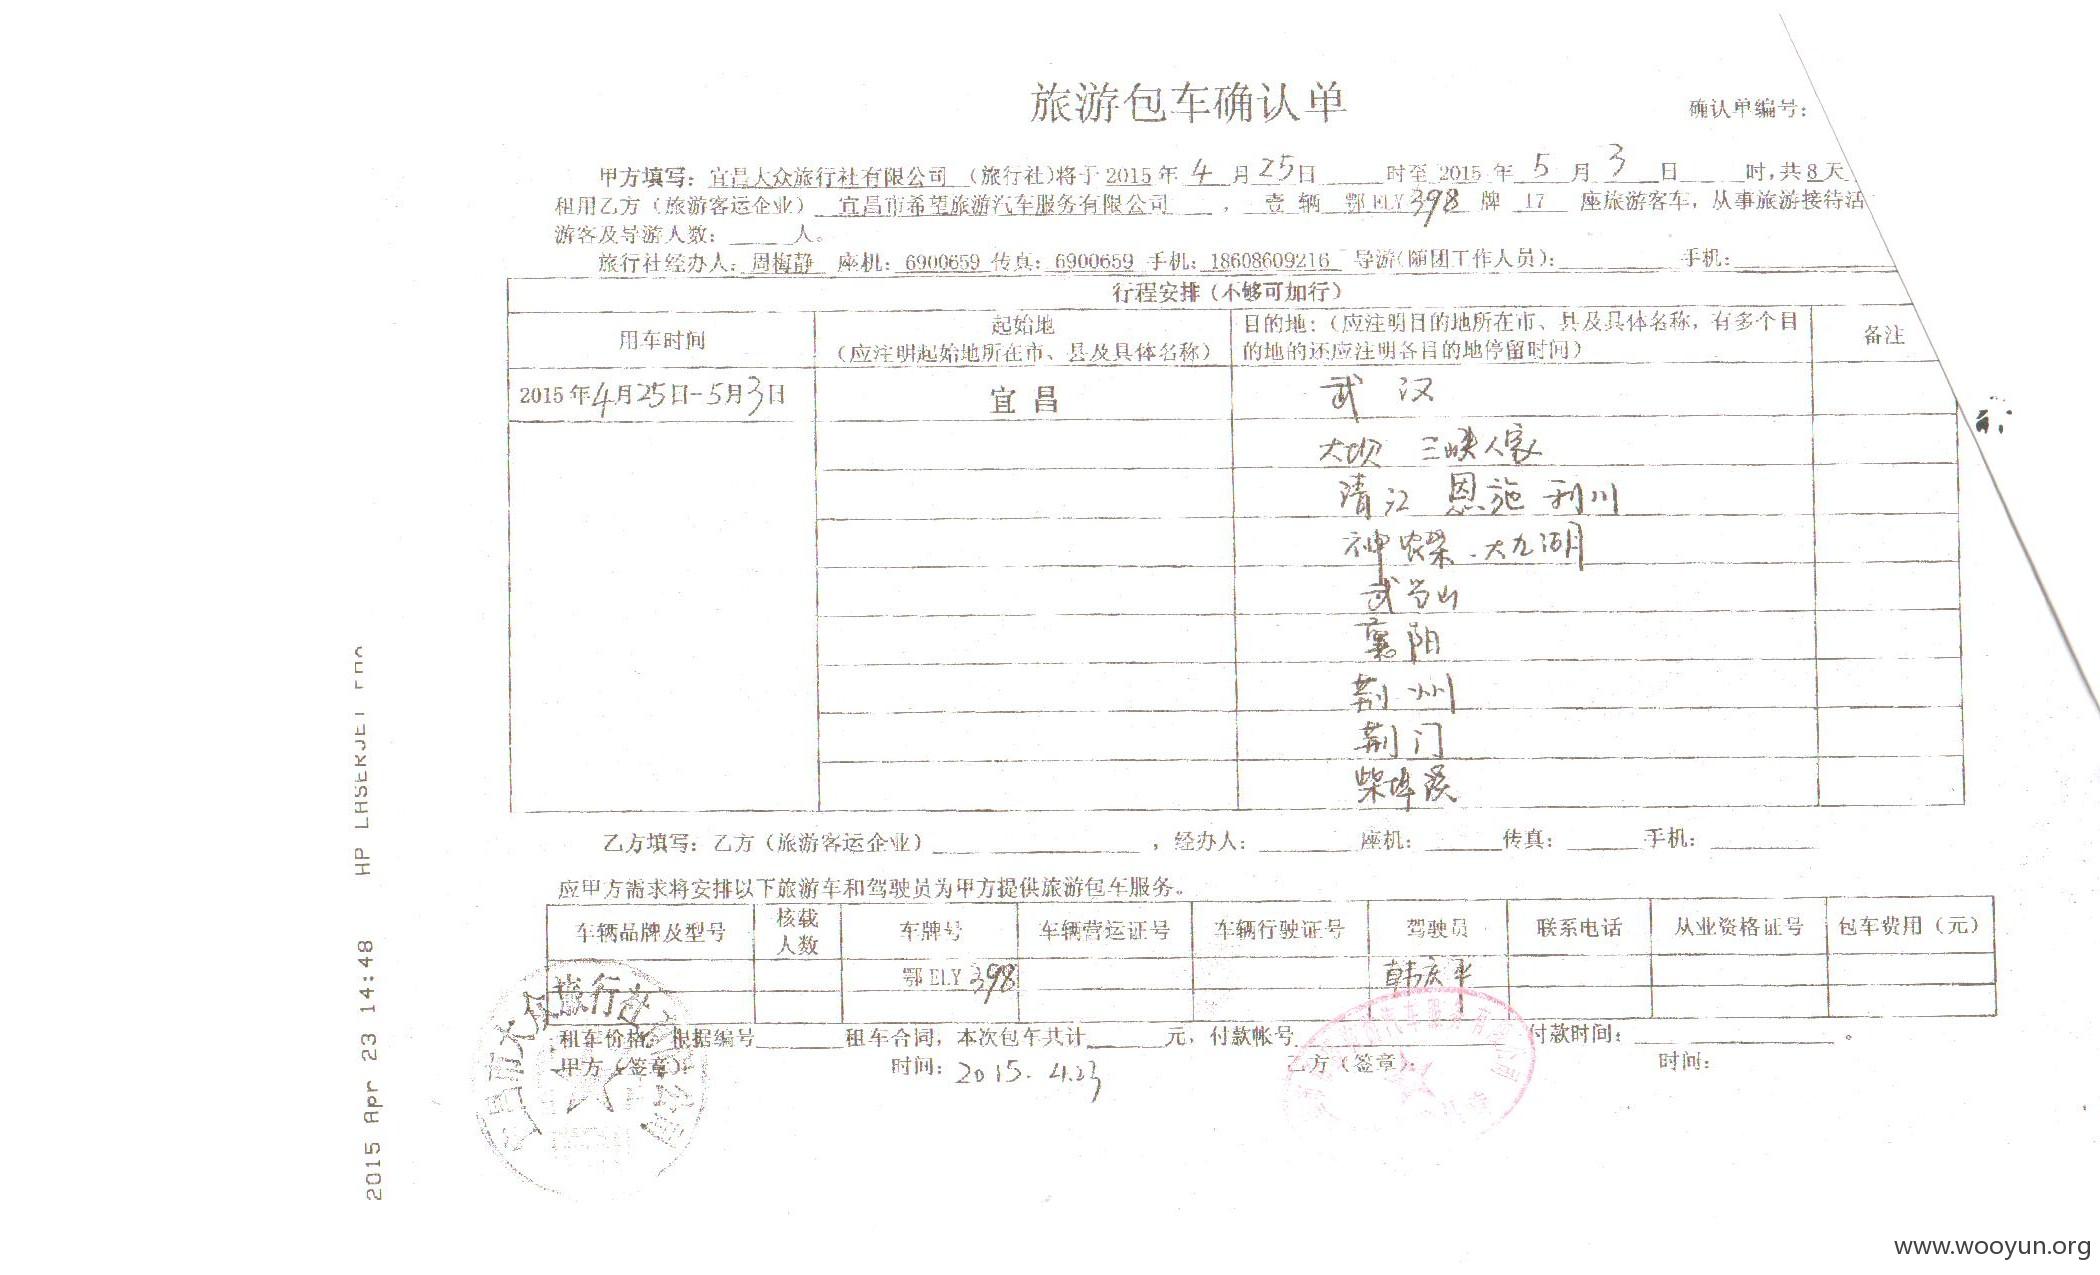 旅游包车确认单
确认单编号:
甲方填写: 宜昌大众旅行社有限公司 (旅行社)将于 2015 年 4 月 25 日 时至 2015 年 5 月 3 日 时,共 8 天
租用乙方(旅游客运企业) 宜昌市希望旅游汽车服务有限公司 , 壹 辆 鄂 ELY 398 牌 17 座旅游客车,从事旅游接待活
游客及导游人数: 人。
旅行社经办人: 周梅静 座机: 6900659 传真: 6900659 手机: 18608609216 导游(随团工作人员): 手机:
行程安排(不够可加行)
用车时间
起始地
(应注明起始地所在市、县及具体名称)
目的地:(应注明目的地所在市、县及具体名称,有多个目
的地的还应注明各目的地停留时间)
备注
2015 年 4 月 25 日-5 月 3 日
宜 昌
武 汉
大坝 三峡人家
清江 恩施 利川
神农架.大九湖
武当山
襄阳
荆州
荆门
柴埠溪
乙方填写: 乙方(旅游客运企业) ,经办人: 座机: 传真: 手机:
应甲方需求将安排以下旅游车和驾驶员为甲方提供旅游包车服务。
车辆品牌及型号 核载人数 车牌号 车辆营运证号 车辆行驶证号 驾驶员 联系电话 从业资格证号 包车费用(元)
鄂 ELY 398 韩庆平
租车价格: 根据编号 租车合同,本次包车共计 元,付款帐号 付款时间: 。
甲方(签章): 时间: 2015. 4.23 乙方(签章): 时间:
2015 Apr 23 14:48 HP LASERJET
www.wooyun.org